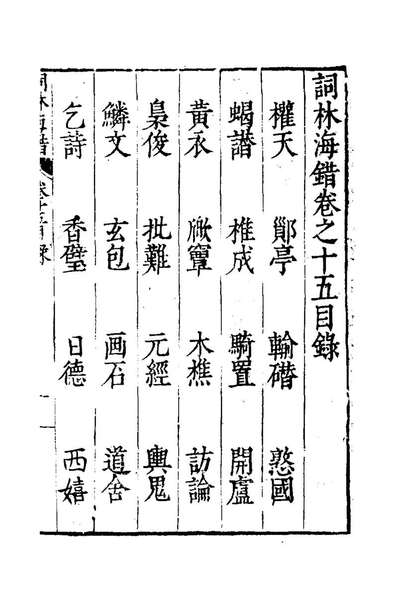 詞林海錯卷之十五目錄
櫂天 鄓亭 輸磻 憨國
蝎譖 椎成 騎置 開盧
黃衣 𣢾竁 木樵 訪論
梟俊 批難 元經 輿鬼
鱗文 玄包 画石 道舍
乞詩 香璧 日德 西嬉
詞林海錯 卷十五目錄 一